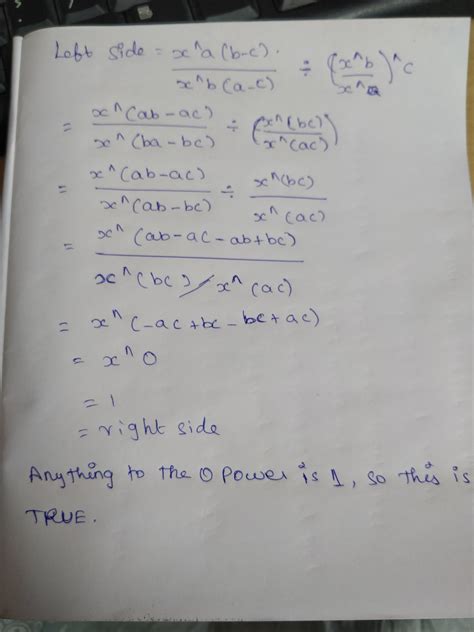 Left side = x^a(b-c). / x^b(a-c) ÷ (x^b / x^a)^c
= x^(ab-ac) / x^(ba-bc) ÷ (x^(bc) / x^(ac))
= x^(ab-ac) / x^(ab-bc) ÷ x^(bc) / x^(ac)
= x^(ab-ac-ab+bc) / x^(bc) / x^(ac)
= x^(-ac+bc-bc+ac)
= x^0
= 1
= right side
Anything to the 0 power is 1, so this is
TRUE.